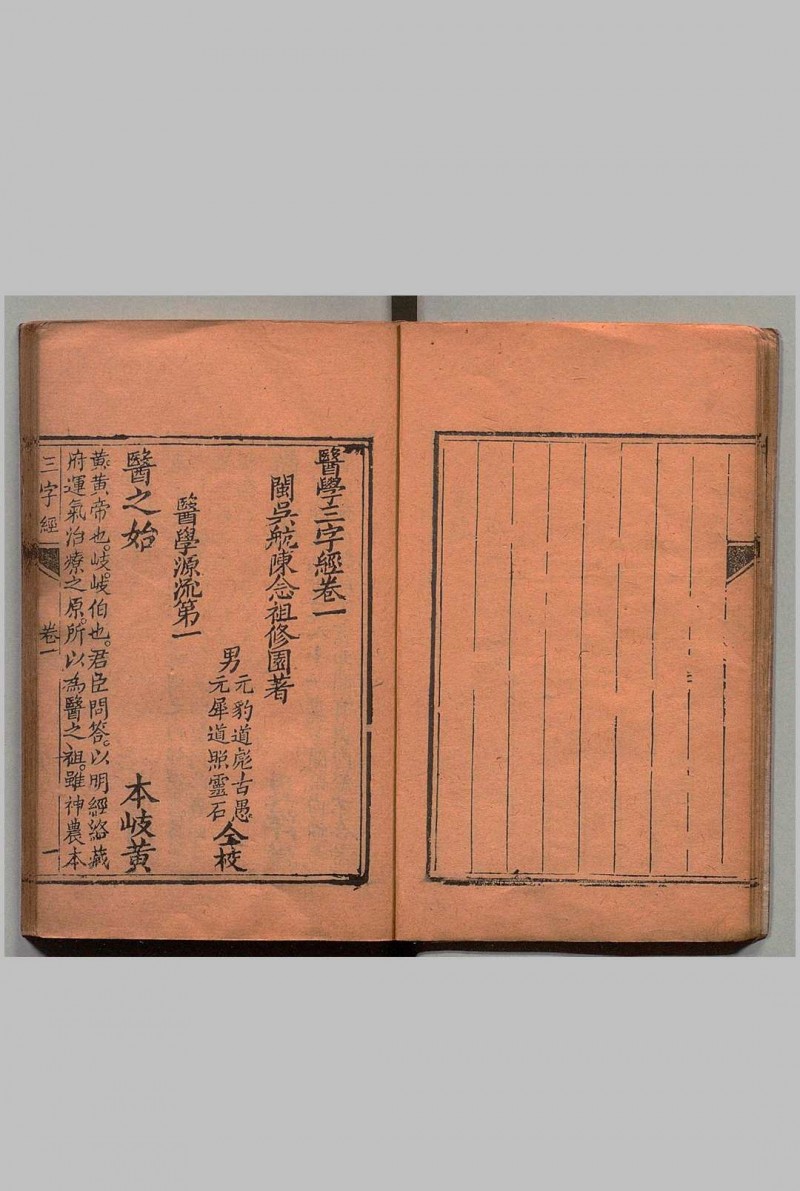 醫學三字經卷一
閩吳航陳念祖修園著
男
元豹道彪古愚
元犀道照靈石
仝挍
醫學源流第一
醫之始 本岐黃
黃。黃帝也。岐。岐伯也。君臣問答。以明經絡藏
府運氣治療之原。所以為醫之祖。雖神農本
三字經 卷一 一